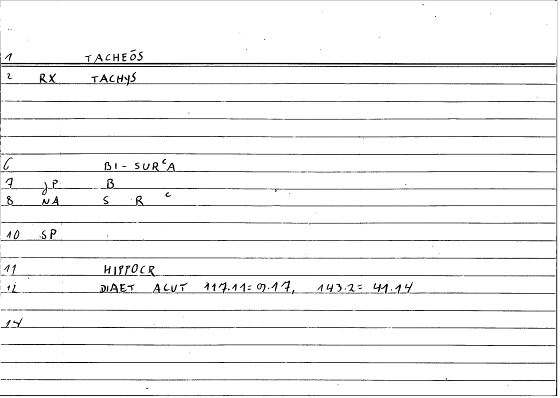 1 TACHEŌS
2 RX TACHYS
6 BI-SURᶜA
7 JP B
8 NA S R ᶜ
10 SP
11 HIPPOCR
12 DIAET ACUT 117.11=9.17, 143.2=41.14
14